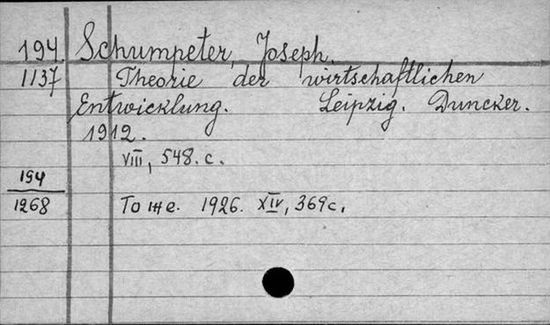 194. Schumpeter, Joseph.
1137 Theorie der wirtschaftlichen
Entwicklung. Leipzig. Duncker.
1912.
VIII, 548. c.
194
1268 То же. 1926. XIV, 369 c.